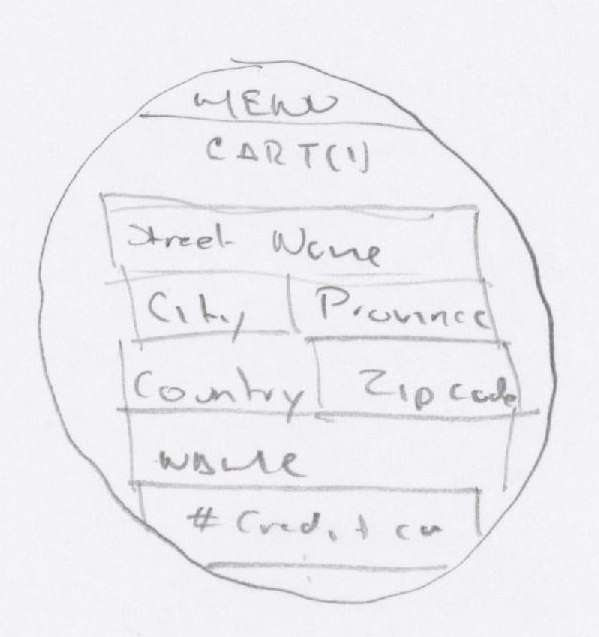 MENU
CART(1)
Street Name
City Province
Country Zip code
Name
# Credit ca